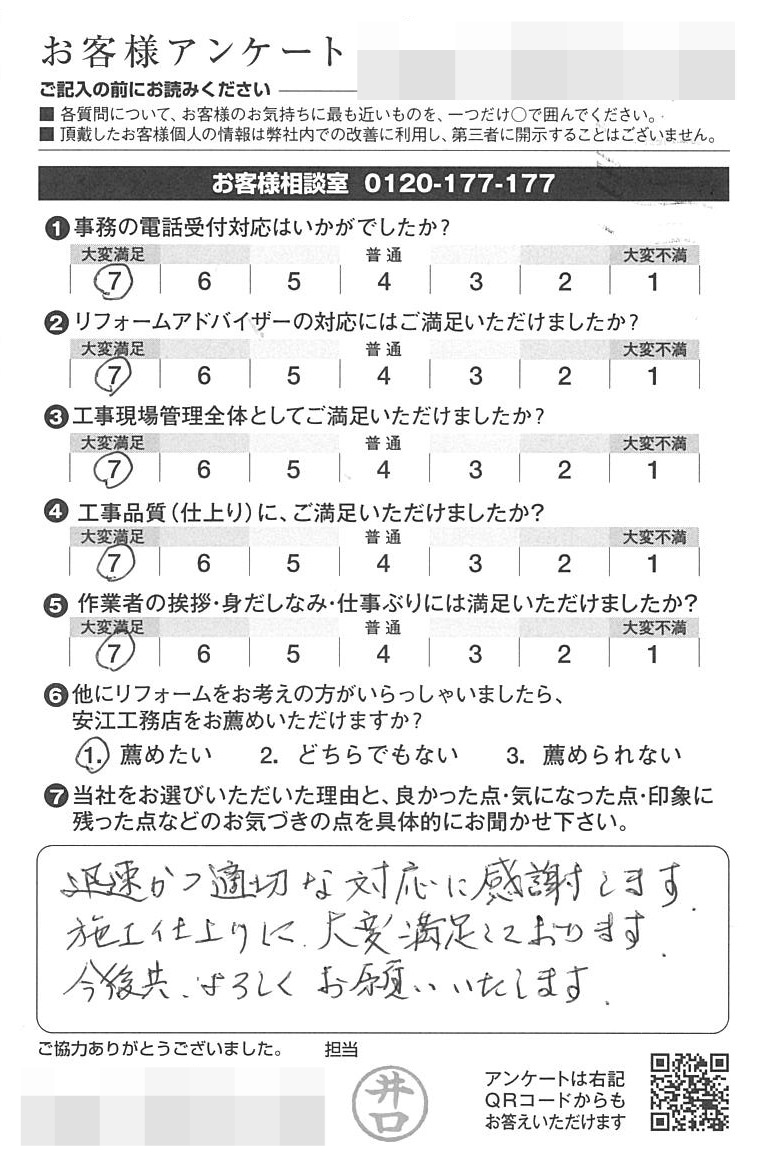 お客様アンケート
ご記入の前にお読みください
■ 各質問について、お客様のお気持ちに最も近いものを、一つだけ○で囲んでください。
■ 頂戴したお客様個人の情報は弊社内での改善に利用し、第三者に開示することはございません。
お客様相談室 0120-177-177
❶ 事務の電話受付対応はいかがでしたか?
大変満足 普通 大変不満
7 6 5 4 3 2 1
❷ リフォームアドバイザーの対応にはご満足いただけましたか?
大変満足 普通 大変不満
7 6 5 4 3 2 1
❸ 工事現場管理全体としてご満足いただけましたか?
大変満足 普通 大変不満
7 6 5 4 3 2 1
❹ 工事品質(仕上り)に、ご満足いただけましたか?
大変満足 普通 大変不満
7 6 5 4 3 2 1
❺ 作業者の挨拶・身だしなみ・仕事ぶりには満足いただけましたか?
大変満足 普通 大変不満
7 6 5 4 3 2 1
❻ 他にリフォームをお考えの方がいらっしゃいましたら、
安江工務店をお薦めいただけますか?
1. 薦めたい 2. どちらでもない 3. 薦められない
❼ 当社をお選びいただいた理由と、良かった点・気になった点・印象に
残った点などのお気づきの点を具体的にお聞かせ下さい。
迅速かつ適切な対応に感謝します.
施工仕上りに、大変満足しております.
今後共、よろしくお願いいたします.
ご協力ありがとうございました。 担当
井口
アンケートは右記
QRコードからも
お答えいただけます